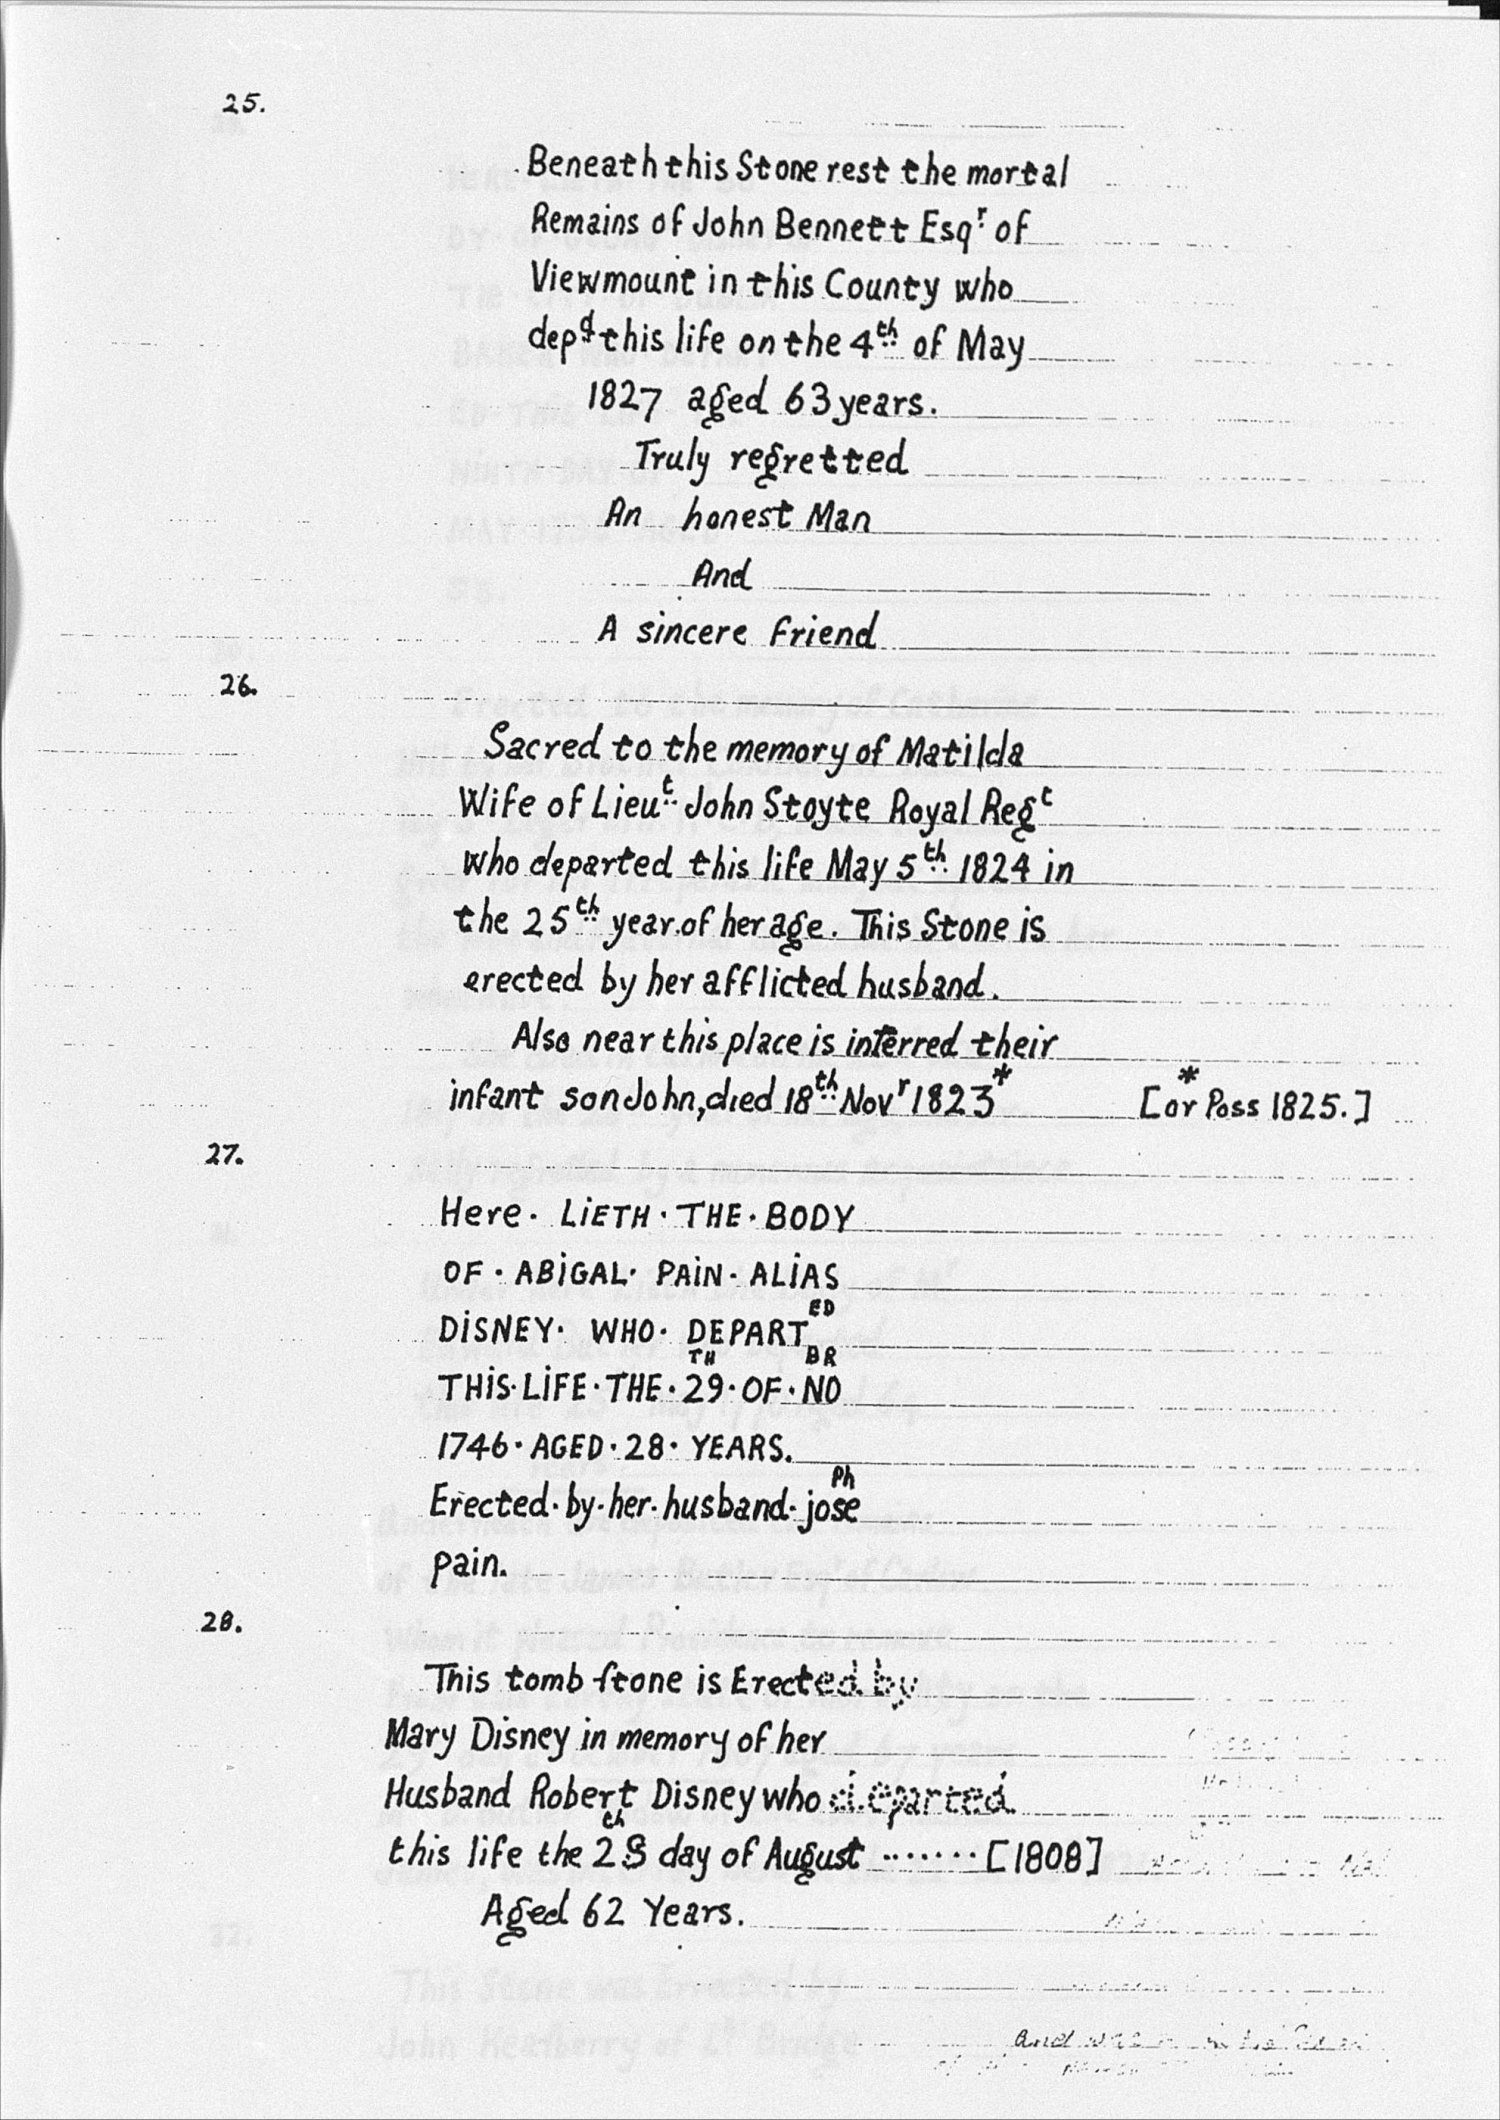 25.
Beneath this Stone rest the mortal
Remains of John Bennett Esqʳ of
Viewmount in this County who
depᵈ this life on the 4ᵗʰ of May
1827 aged 63 years.
Truly regretted
An honest Man
And
A sincere friend
26.
Sacred to the memory of Matilda
Wife of Lieuᵗ John Stoyte Royal Regᵗ
who departed this life May 5ᵗʰ 1824 in
the 25ᵗʰ year of her age. This Stone is
erected by her afflicted husband.
Also near this place is interred their
infant son John, died 18ᵗʰ Novʳ 1823* [*or Poss 1825.]
27.
Here· LiETH·THE·BODY
OF·ABiGAL· PAiN· ALiAS
DiSNEY· WHO· DEPARTED
THiS·LiFE·THE·29TH·OF·NOBR
1746·AGED·28· YEARS.
Erected·by·her·husband·josePh
pain.
28.
This tomb ſtone is Erected by
Mary Disney in memory of her
Husband Robert Disney who departed
this life the 28th day of August ....... [1808]
Aged 62 Years.